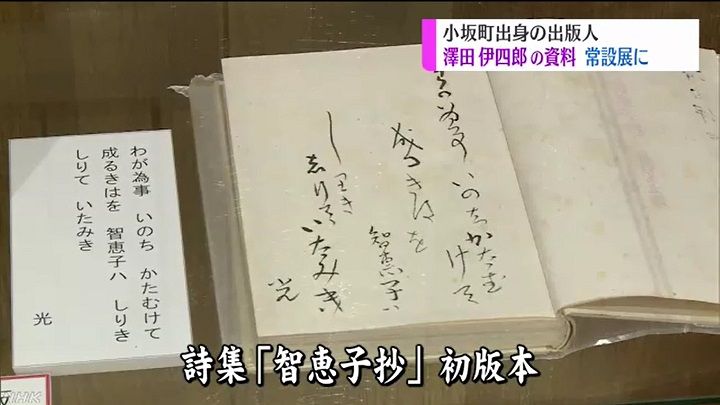 小坂町出身の出版人
澤田 伊四郎の資料 常設展に
わが為事 いのち かたむけて
成るきはを 智恵子ハ しりき
しりて いたみき
光
わが為事 いのちかたむけて
成るきはを
智恵子ハ
しりき
しりて いたみき
光
詩集「智恵子抄」初版本
NHK